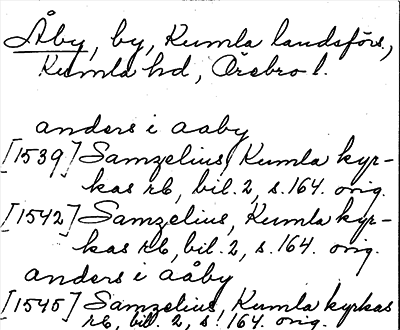 Åby, by, Kumla landsförs.,
Kumla hd, Örebro l.
anders i aaby
[1539] Samzelius, Kumla kyr-
kas rb, bil. 2, s. 164. orig.
[1542] Samzelius, Kumla kyr-
kas rb, bil. 2, s. 164. orig.
anders i aåby
[1545] Samzelius, Kumla kyrkas
rb, bil. 2, s. 164. orig.